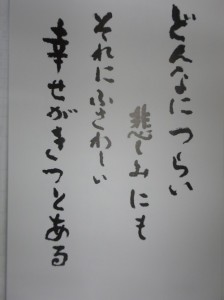 どんなにつらい
悲しみにも
それにふさわしい
幸せがきっとある